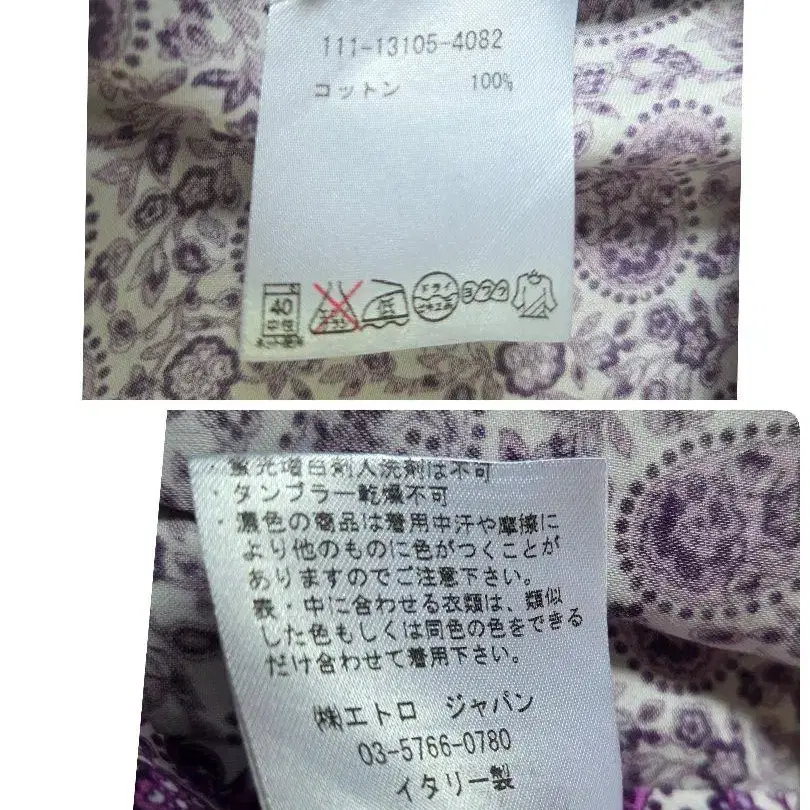 111-13105-4082
コットン 100%
40
低
ドライ
・蛍光増白剤入洗剤は不可
・タンブラー乾燥不可
・濃色の商品は着用中汗や摩擦に
より他のものに色がつくことが
ありますのでご注意下さい。
表・中に合わせる衣類は、類似
した色もしくは同色の色をできる
だけ合わせて着用下さい。
㈱エトロ ジャパン
03-5766-0780
イタリー製